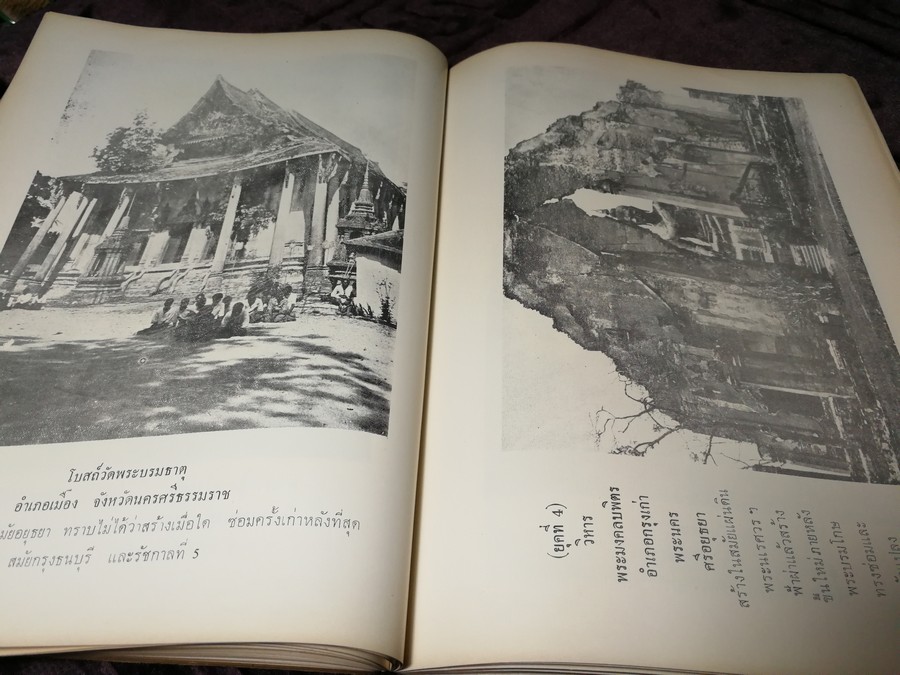 โบสถ์วัดพระบรมธาตุ
อำเภอเมือง จังหวัดนครศรีธรรมราช
มัยอยุธยา ทราบไม่ได้ว่าสร้างเมื่อใด ซ่อมครั้งเก่าหลังที่สุด
สมัยกรุงธนบุรี และรัชกาลที่ 5
(ยุคที่ 4)
วิหาร
พระมงคลบพิตร
อำเภอกรุงเก่า
พระนคร
ศรีอยุธยา
สร้างในสมัยแผ่นดิน
พระนเรศวร ๆ
ฟ้าผ่าแล้วสร้าง
ขึ้นใหม่ภายหลัง
พระบรมโกษ
ทรงซ่อมและ